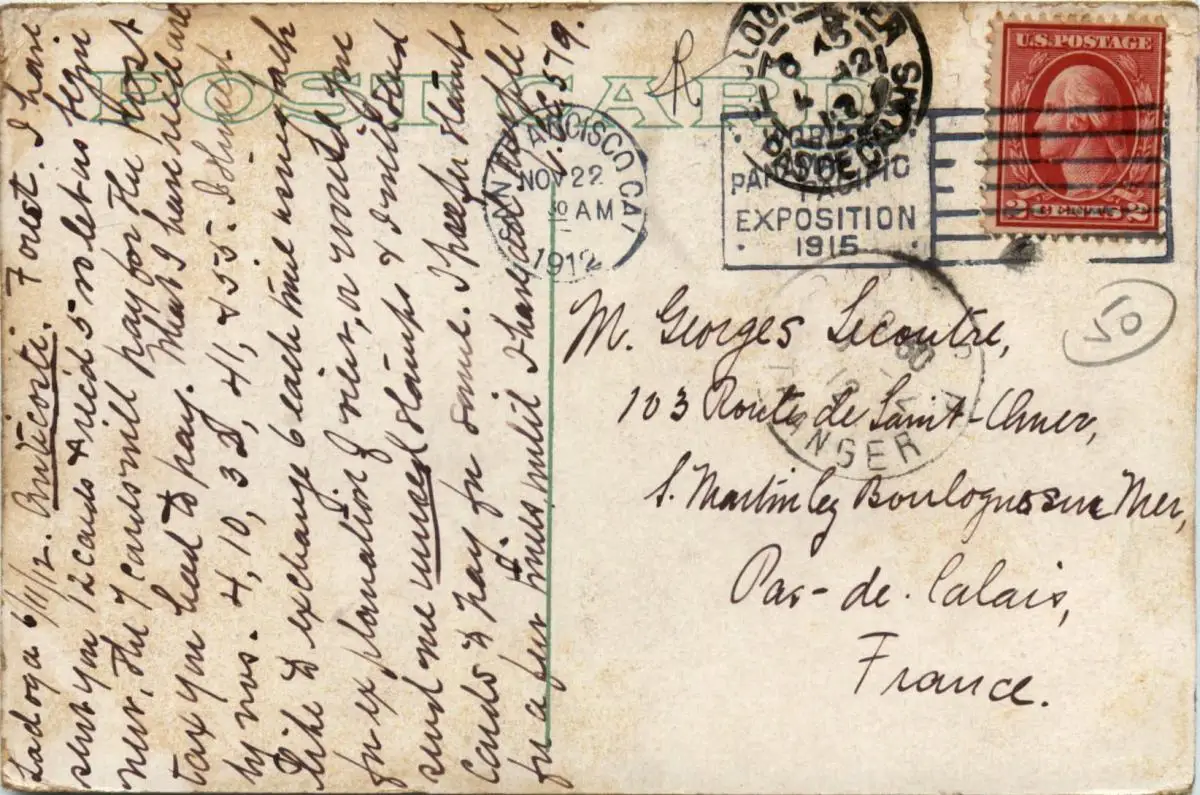 POST CARD
R
SAN FRANCISCO CAL
NOV 22
30 AM
1912
BOULOGNE S MER
PAS DE CALAIS
PACIFIC
EXPOSITION
1915
U.S. POSTAGE
2 2
TANGER
50
M. Georges Lecoutre,
103 Route de Saint-Omer,
S. Martin ley Boulogne sur Mer,
Pas-de-Calais,
France.
Ladoga 6/11/12. Anticosti. Forest. I have
sent you 12 cards & rec'd 5 so let us begin
new. The 7 cards will pay for the post
tax you had to pay. What I have rec'd are
by nos. 4, 10, 38, 41, & 55. I should
like to exchange 6 each time using back
for explanation of view, or would you
send me unused stamps & I will send
cards to pay for same. I prefer stamps
for a few times, until I have used